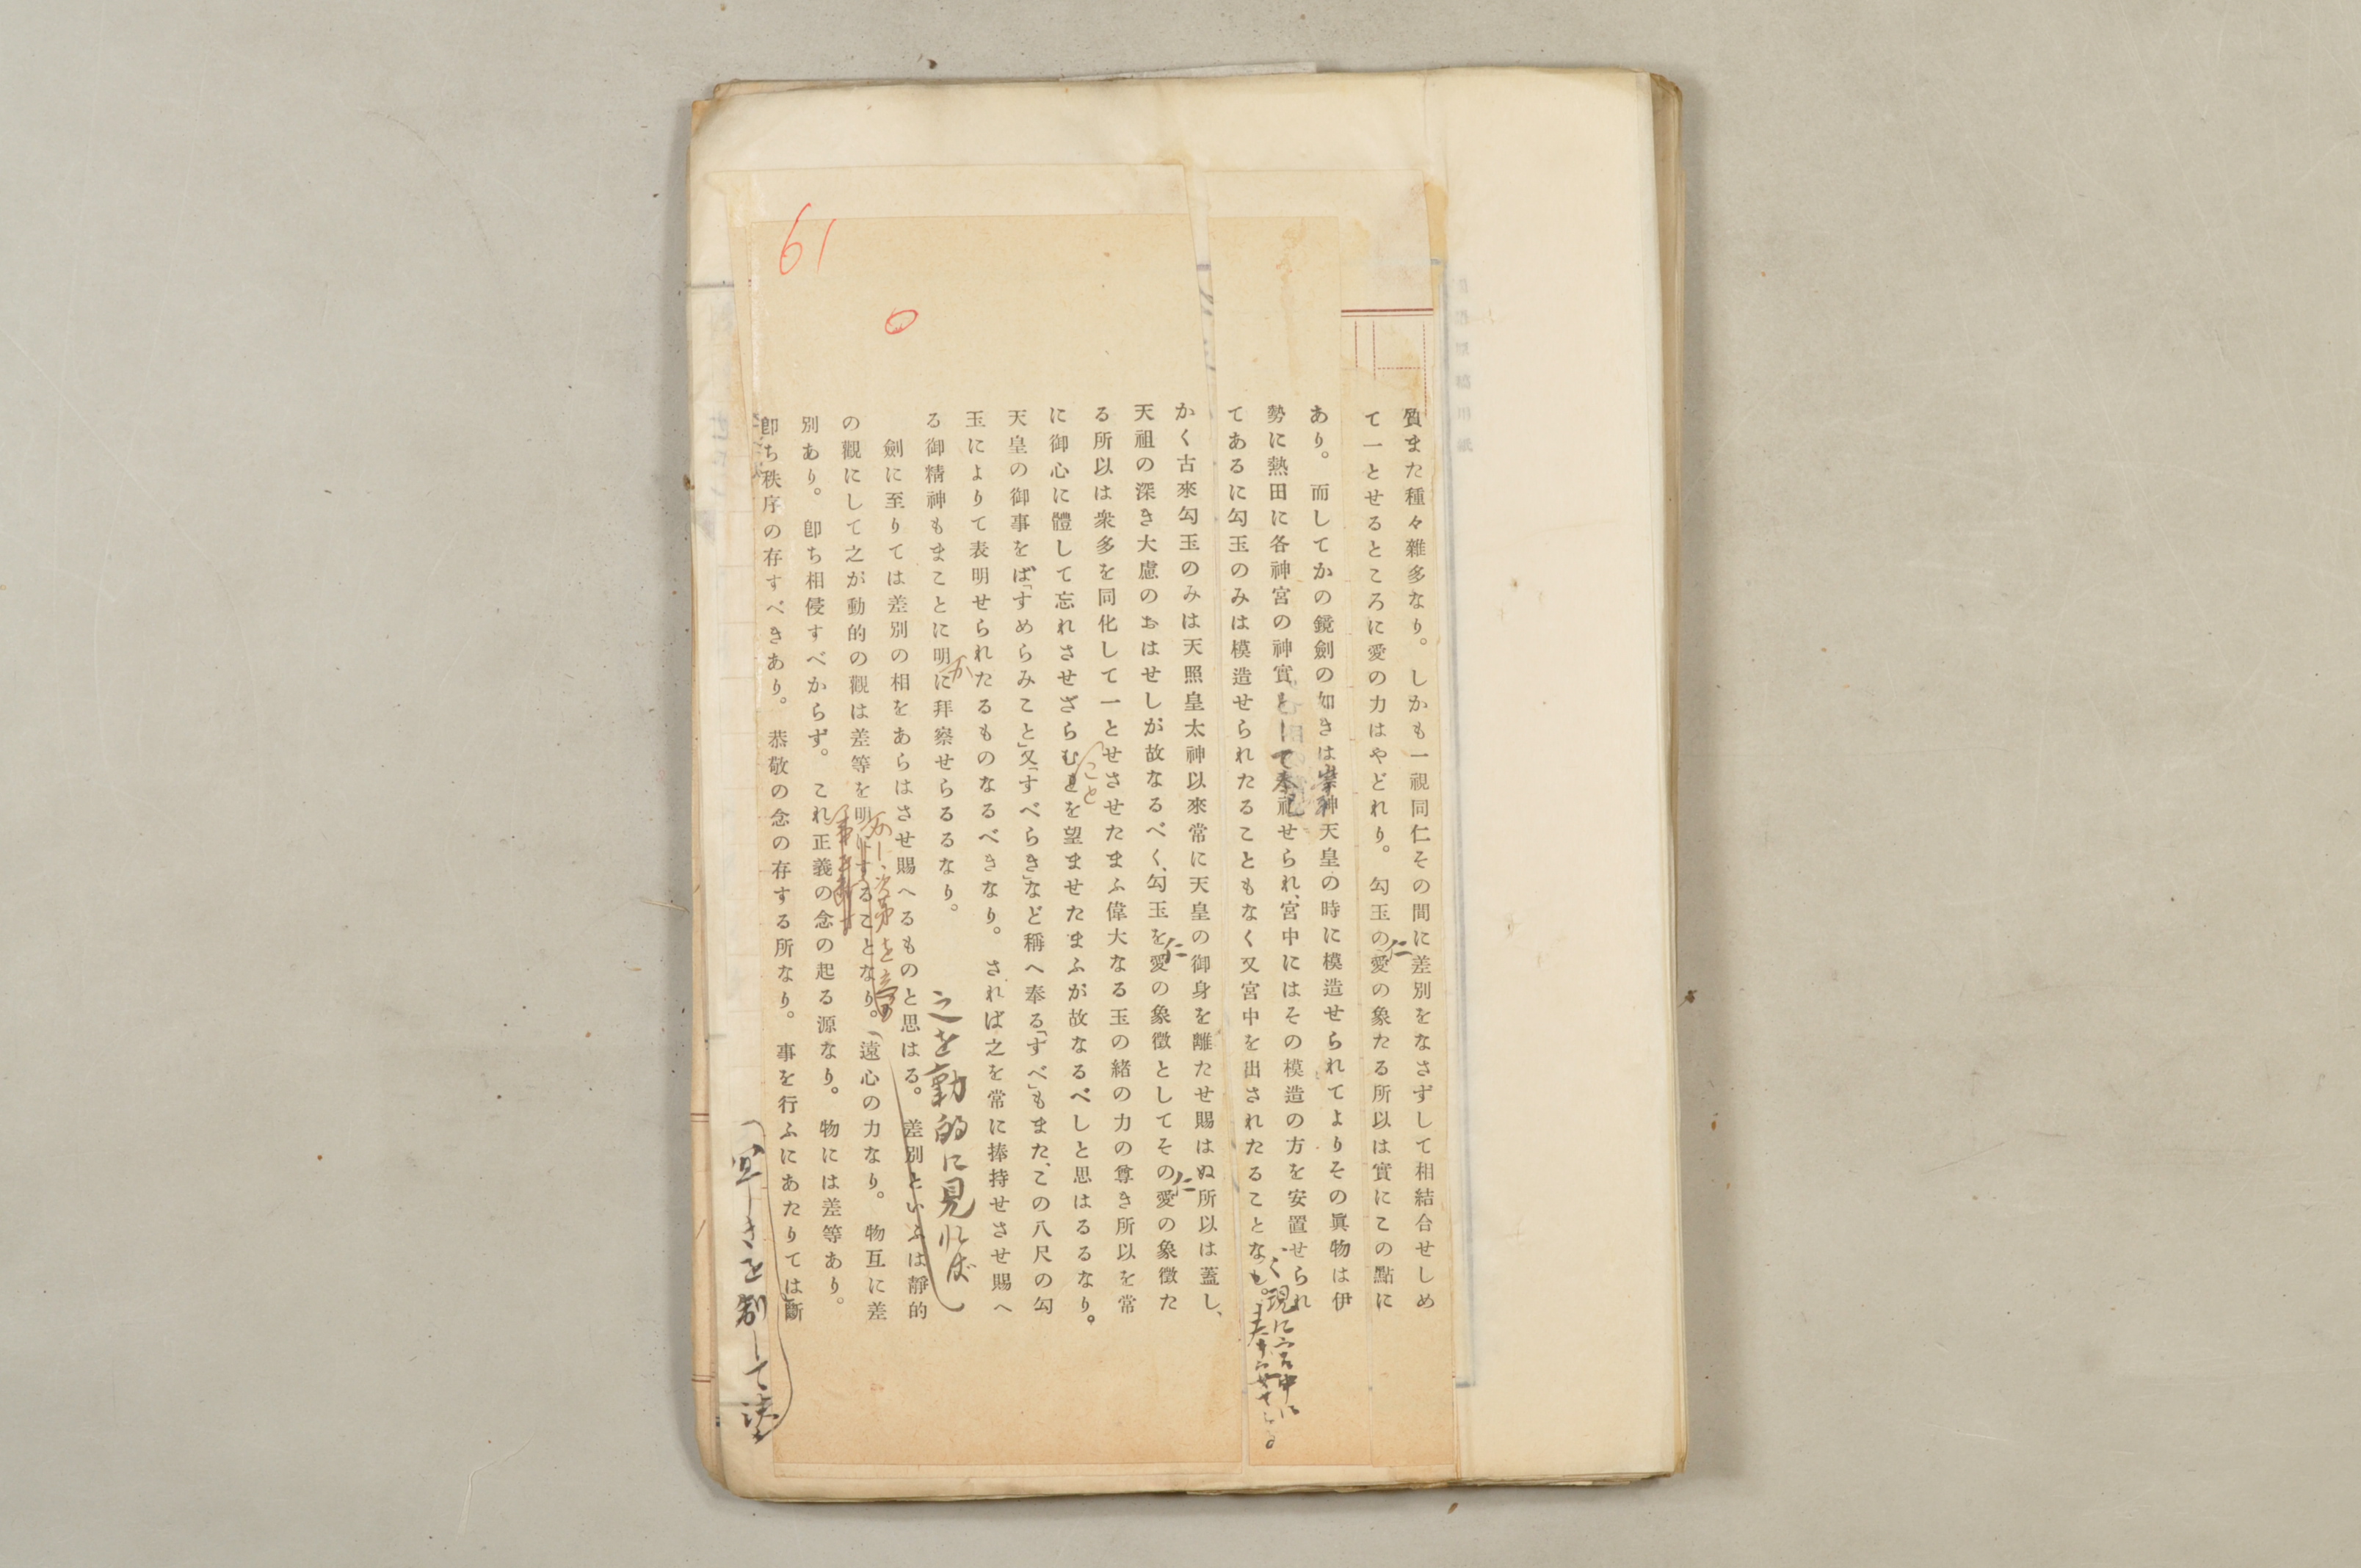 61
質また種々雜多なり。しかも一視同仁その間に差別をなさずして相結合せしめ
て一とせるところに愛の力はやどれり。勾玉の仁愛の象たる所以は實にこの點に
あり。而してかの鏡劍の如きは崇神天皇の時に模造せられてよりその眞物は伊
勢に熱田に各神宮の神實として奉祀せられ、宮中にはその模造の方を安置せられ
てあるに勾玉のみは模造せられたることもなく又宮中を出されたることなし。
く現に宮中に
かく古來勾玉のみは天照皇太神以來常に天皇の御身を離たせ賜はぬ所以は蓋し、
天祖の深き大慮のおはせしが故なるべく、勾玉を仁愛の象徴としてその仁愛の象徴た
る所以は衆多を同化して一とせさせたまふ偉大なる玉の緒の力の尊き所以を常
に御心に體して忘れさせざらむことを望ませたまふが故なるべしと思はるるなり。
天皇の御事をば「すめらみこと」又「すべらき」など稱へ奉る「すべ」もまた、この八尺の勾
玉によりて表明せられたるものなるべきなり。されば之を常に捧持せさせ賜へ
る御精神もまことに明かに拜察せらるるなり。
之を動的に見れば
劍に至りては差別の相をあらはさせ賜へるものと思はる。差別といふは靜的
の觀にして之が動的の觀は差等を明にすることなり。遠心の力なり。物互に差
別あり。卽ち相侵すべからず。これ正義の念の起る源なり。物には差等あり。
卽ち秩序の存すべきあり。恭敬の念の存する所なり。事を行ふにあたりては斷
宜しきを制して